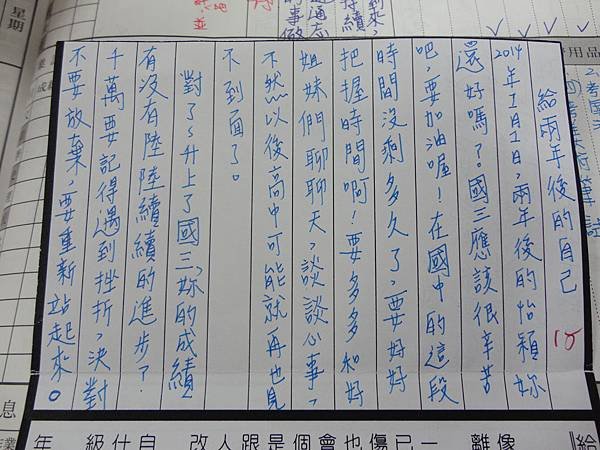 給兩年後的自己
15
2014年1月1日,兩年後的怡穎妳
還好嗎?國三應該很辛苦
吧,要加油喔!在國中的這段
時間沒剩多久了,要好好
把握時間啊!要多多和好
姐妹們聊聊天,談談心事,
不然以後高中可能就再也見
不到面了。
對了~升上了國三,妳的成績
有沒有陸陸續續的進步?
千萬要記得遇到挫折,決對
不要放棄,要重新站起來。
星期
息
給
像
離
一已傷也會個是跟人改
自仕級年